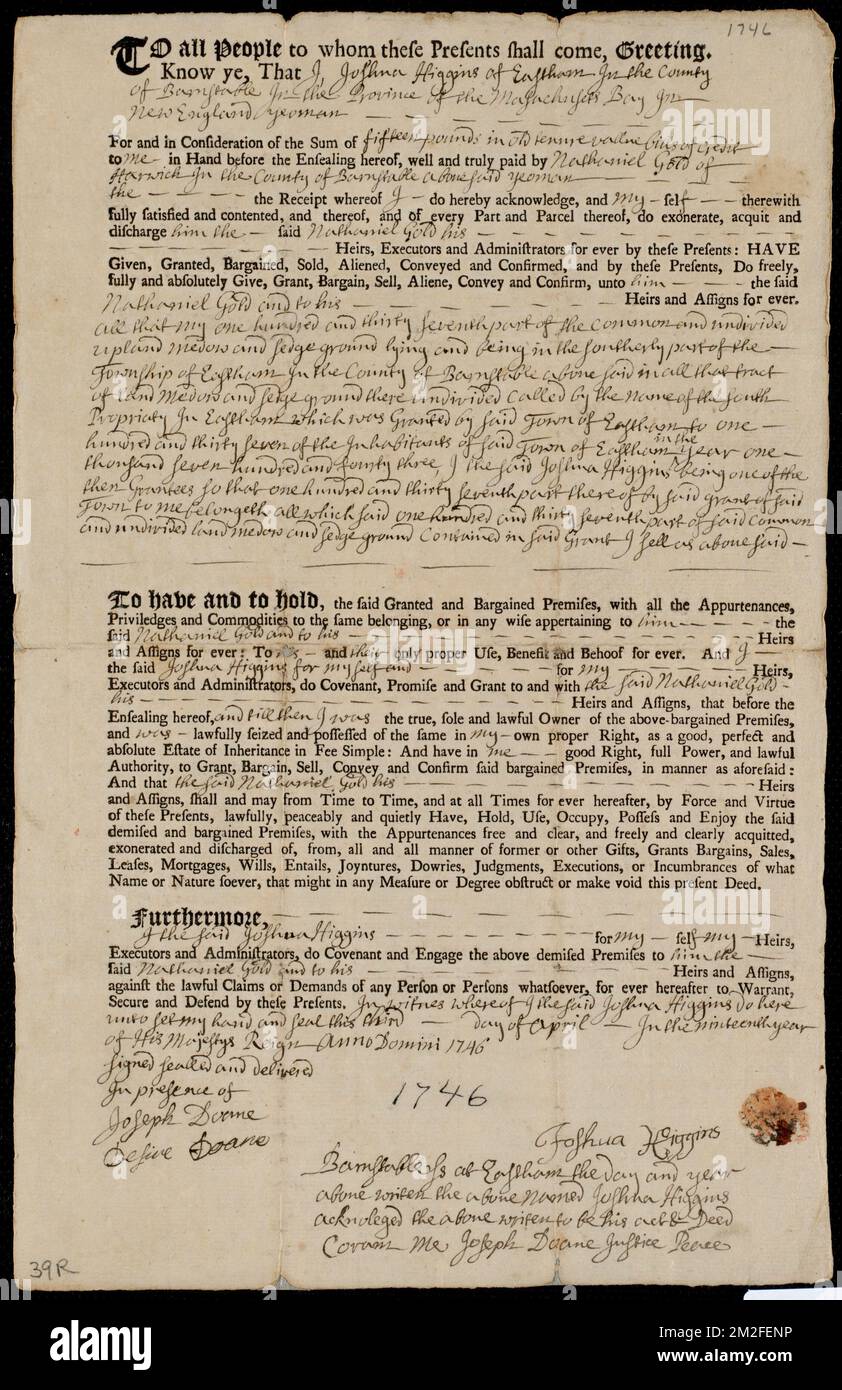 1746
TO all People to whom these Presents shall come, Greeting.
Know ye, That I, Joshua Higgins of Eastham In the County
of Barnstable In the Province of the Masachusets Bay In
New England yeoman
For and in Consideration of the Sum of fifteen pounds in old tenure value bills of Credit
to me in Hand before the Ensealing hereof, well and truly paid by Nathaniel Gold of
Harwich In the County of Barnstable above said yeoman
the the Receipt whereof I do hereby acknowledge, and my self therewith
fully satisfied and contented, and thereof, and of every Part and Parcel thereof, do exonerate, acquit and
discharge him the said Nathaniel Gold his
Heirs, Executors and Administrators for ever by these Presents: HAVE
Given, Granted, Bargained, Sold, Aliened, Conveyed and Confirmed, and by these Presents, Do freely,
fully and absolutely Give, Grant, Bargain, Sell, Aliene, Convey and Confirm, unto him the said
Nathaniel Gold and to his Heirs and Assigns for ever.
all that my one hundred and thirty seventh part of the Common and undivided
upland medow and sedge ground lying and being in the southerly part of the
Township of Eastham In the County of Barnstable above said in all that tract
of land medow and sedge ground there undivided Called by the Name of the South
Propriaty In Eastham which was Granted by said Town of Eastham to one
hundred and thirty seven of the Inhabitants of said Town of Eastham in the year one
thousand seven hundred and fourty three, I the said Joshua Higgins being one of the
then Grantees so that one hundred and thirty seventh part thereof by said grant of said
Town to me belongeth all which said one hundred and thirty seventh part of said Common
and undivided land medow and sedge ground Contained in said Grant I sell as above said
To have and to hold, the said Granted and Bargained Premises, with all the Appurtenances,
Priviledges and Commodities to the same belonging, or in any wise appertaining to him the
said Nathaniel Gold and to his Heirs
and Assigns for ever: To his and their only proper Use, Benefit and Behoof for ever. And I
the said Joshua Higgins for my self and for my Heirs,
Executors and Administrators, do Covenant, Promise and Grant to and with the said Nathaniel Gold
his Heirs and Assigns, that before the
Ensealing hereof, and till then I was the true, sole and lawful Owner of the above-bargained Premises,
and was lawfully seized and possessed of the same in my own proper Right, as a good, perfect and
absolute Estate of Inheritance in Fee Simple: And have in me good Right, full Power, and lawful
Authority, to Grant, Bargain, Sell, Convey and Confirm said bargained Premises, in manner as aforesaid:
And that the said Nathaniel Gold his Heirs
and Assigns, shall and may from Time to Time, and at all Times for ever hereafter, by Force and Virtue
of these Presents, lawfully, peaceably and quietly Have, Hold, Use, Occupy, Possess and Enjoy the said
demised and bargained Premises, with the Appurtenances free and clear, and freely and clearly acquitted,
exonerated and discharged of, from, all and all manner of former or other Gifts, Grants Bargains, Sales,
Leases, Mortgages, Wills, Entails, Joyntures, Dowries, Judgments, Executions, or Incumbrances of what
Name or Nature soever, that might in any Measure or Degree obstruct or make void this present Deed.
Furthermore,
I the said Joshua Higgins for my self my Heirs,
Executors and Administrators, do Covenant and Engage the above demised Premises to him the
said Nathaniel Gold and to his Heirs and Assigns,
against the lawful Claims or Demands of any Person or Persons whatsoever, for ever hereafter to Warrant,
Secure and Defend by these Presents. In witnes whereof I the said Joshua Higgins do here
unto set my hand and seal this third day of April In the ninteenth year
of His Majestys Reign Anno Domini 1746
signed sealed and delivered
In presence of
Joseph Doane
Desire Doane
1746
Joshua Higgins
Barnstable ss at Eastham the day and year
above writen the above Named Joshua Higgins
acknoleged the above writen to be his act & Deed
Coram Me Joseph Doane Justice Peace
39R
alamy
Image ID: 2M2FENP
www.alamy.com